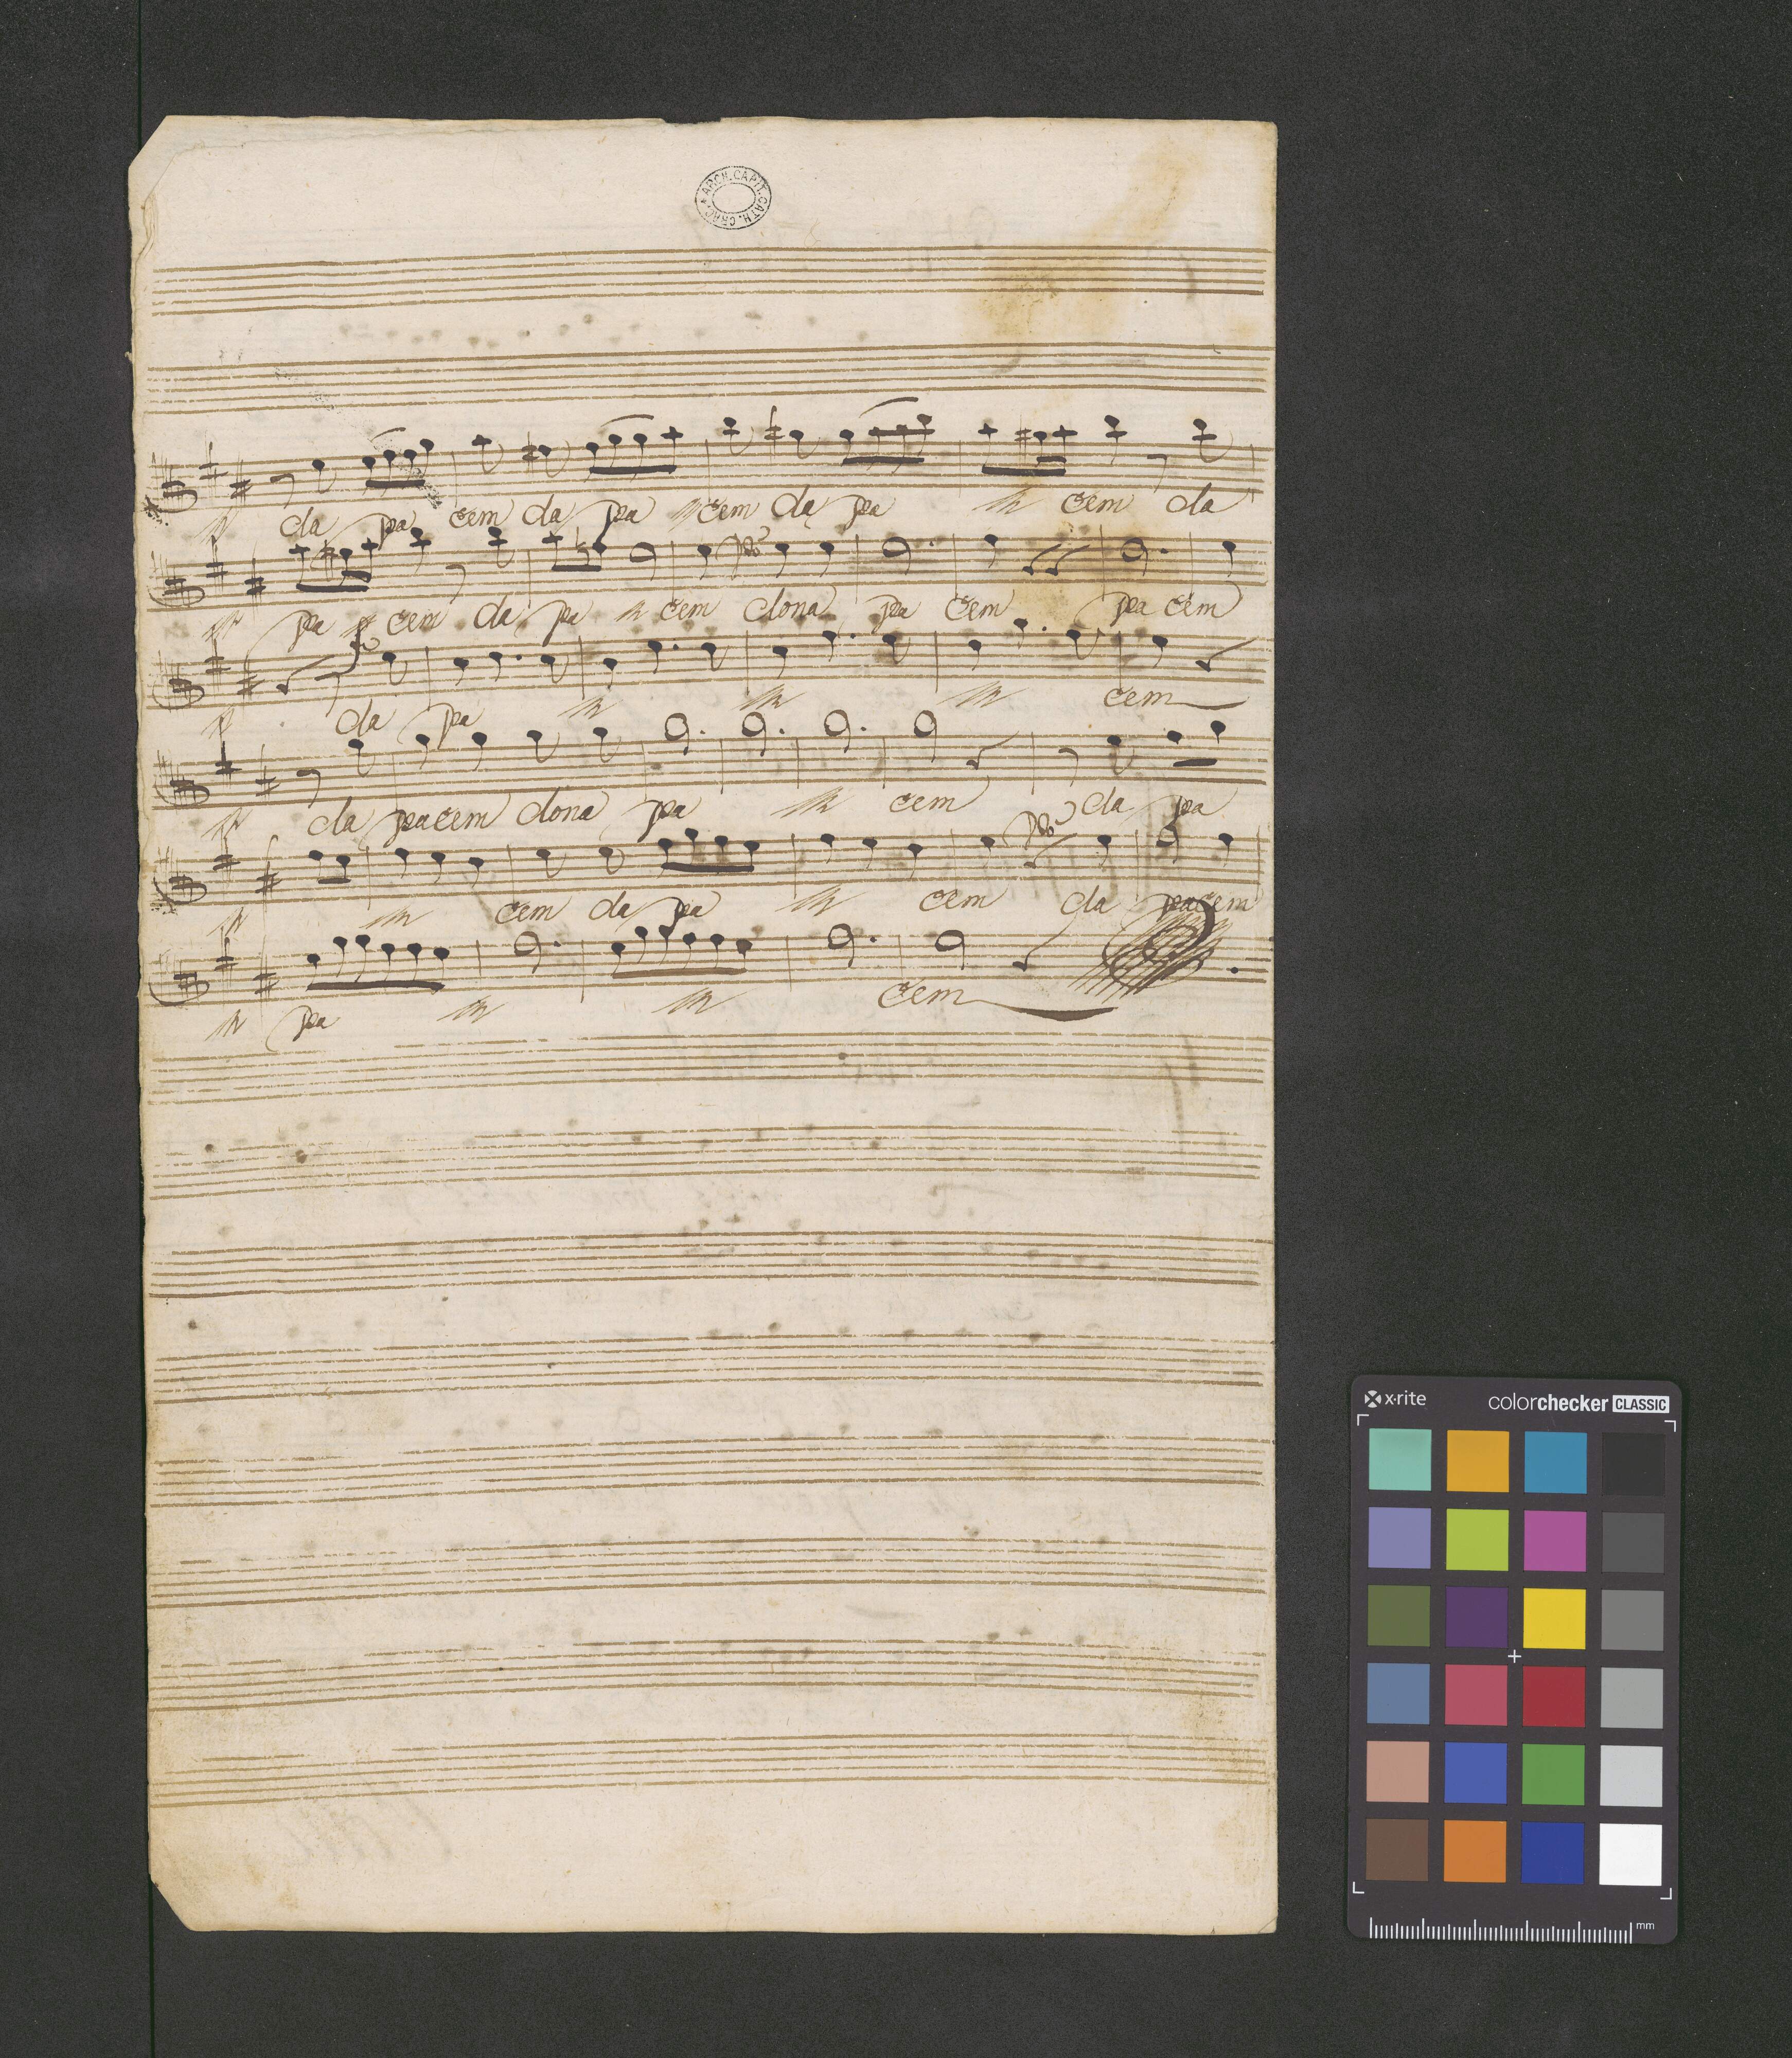 ARCH. CAPIT. CATH. CRAC.
da pa cem da pa cem da pa cem da
pa cem da pa cem dona pa cem pa cem
po
fo
da pa cem
da pacem dona pa cem da pa
po
cem da pa cem da pacem
pa cem
x·rite colorchecker CLASSIC
mm